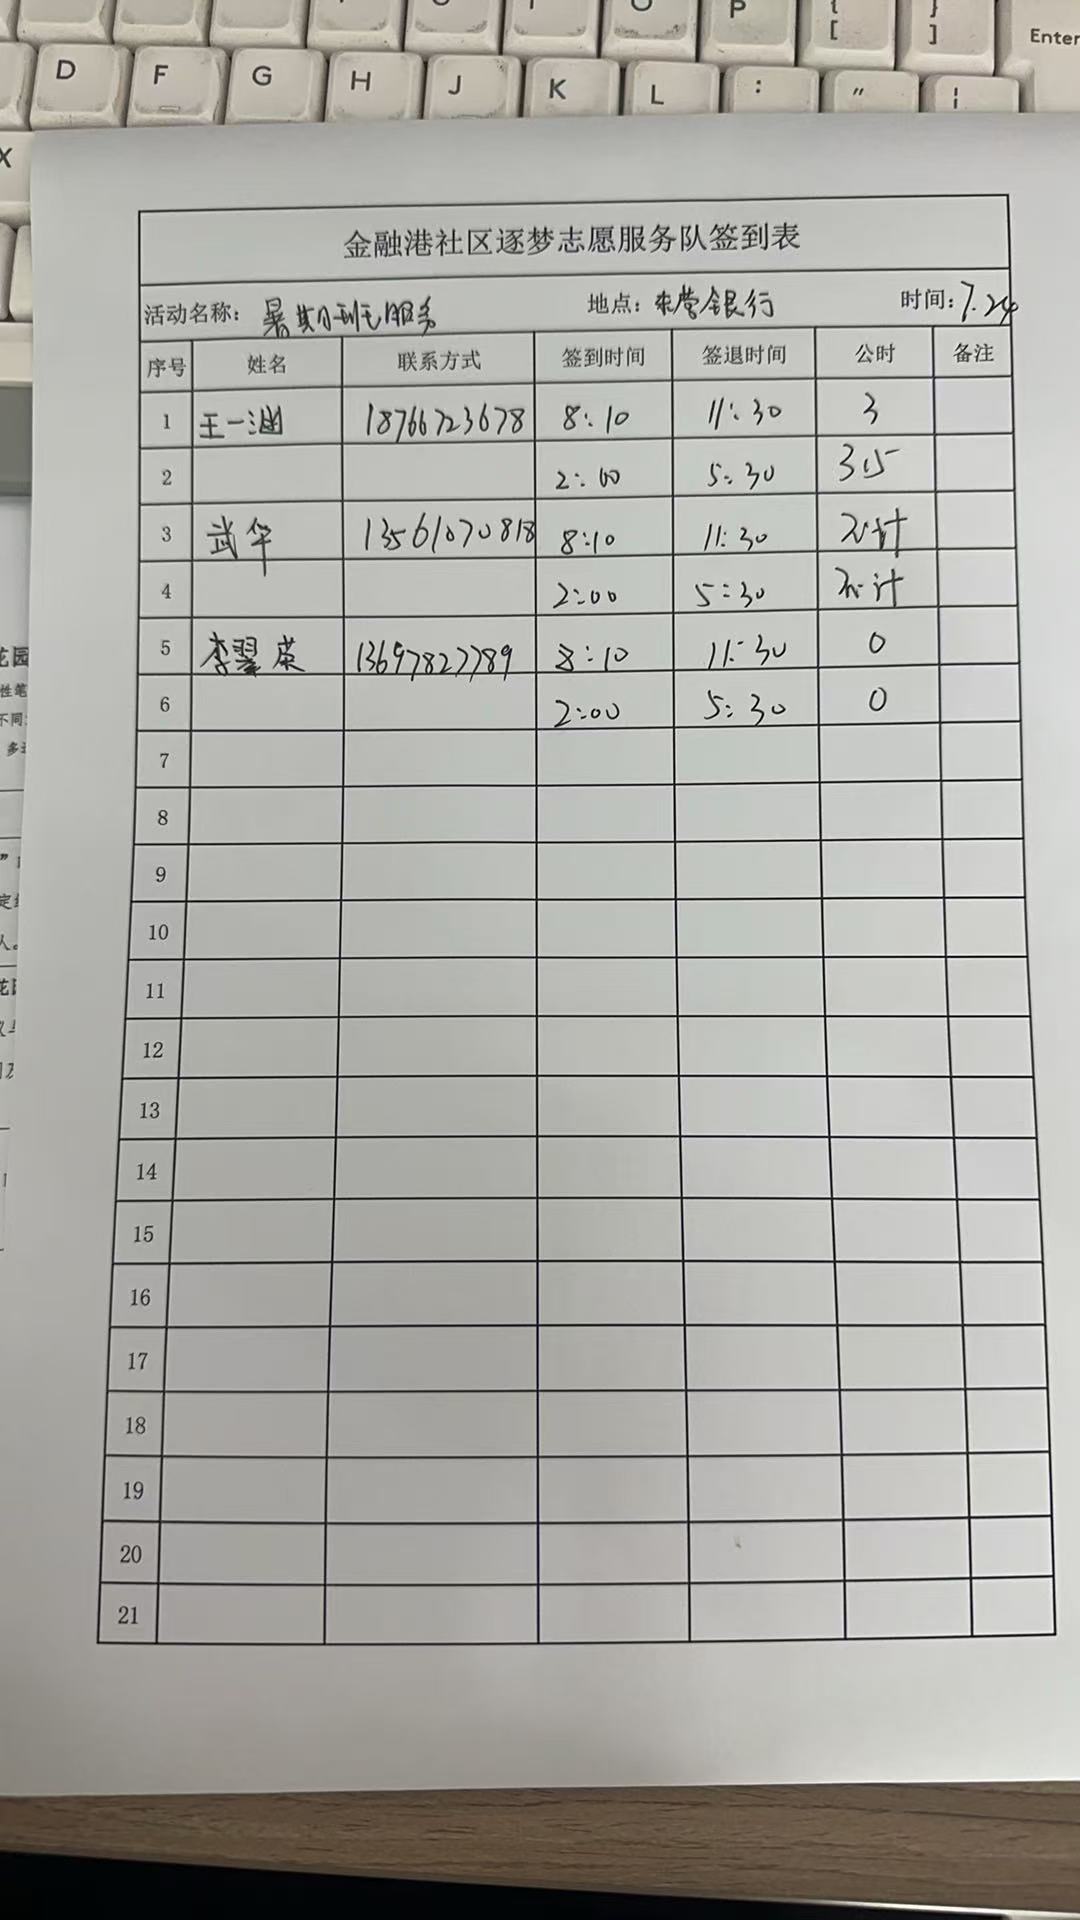 P
{
[
}
]
Enter
D F G H J K L : " ¦
X
金融港社区逐梦志愿服务队签到表
活动名称：暑期班服务 地点：东营银行 时间：7.24
序号 姓名 联系方式 签到时间 签退时间 公时 备注
1 王一涵 18766723678 8:10 11:30 3
2 2:00 5:30 3.5
3 武华 13561070818 8:10 11:30 不计
4 2:00 5:30 不计
5 李翠英 13697827789 8:10 11:30 0
6 2:00 5:30 0
7
8
9
10
11
12
13
14
15
16
17
18
19
20
21
花园
性笔
不同
多
人。